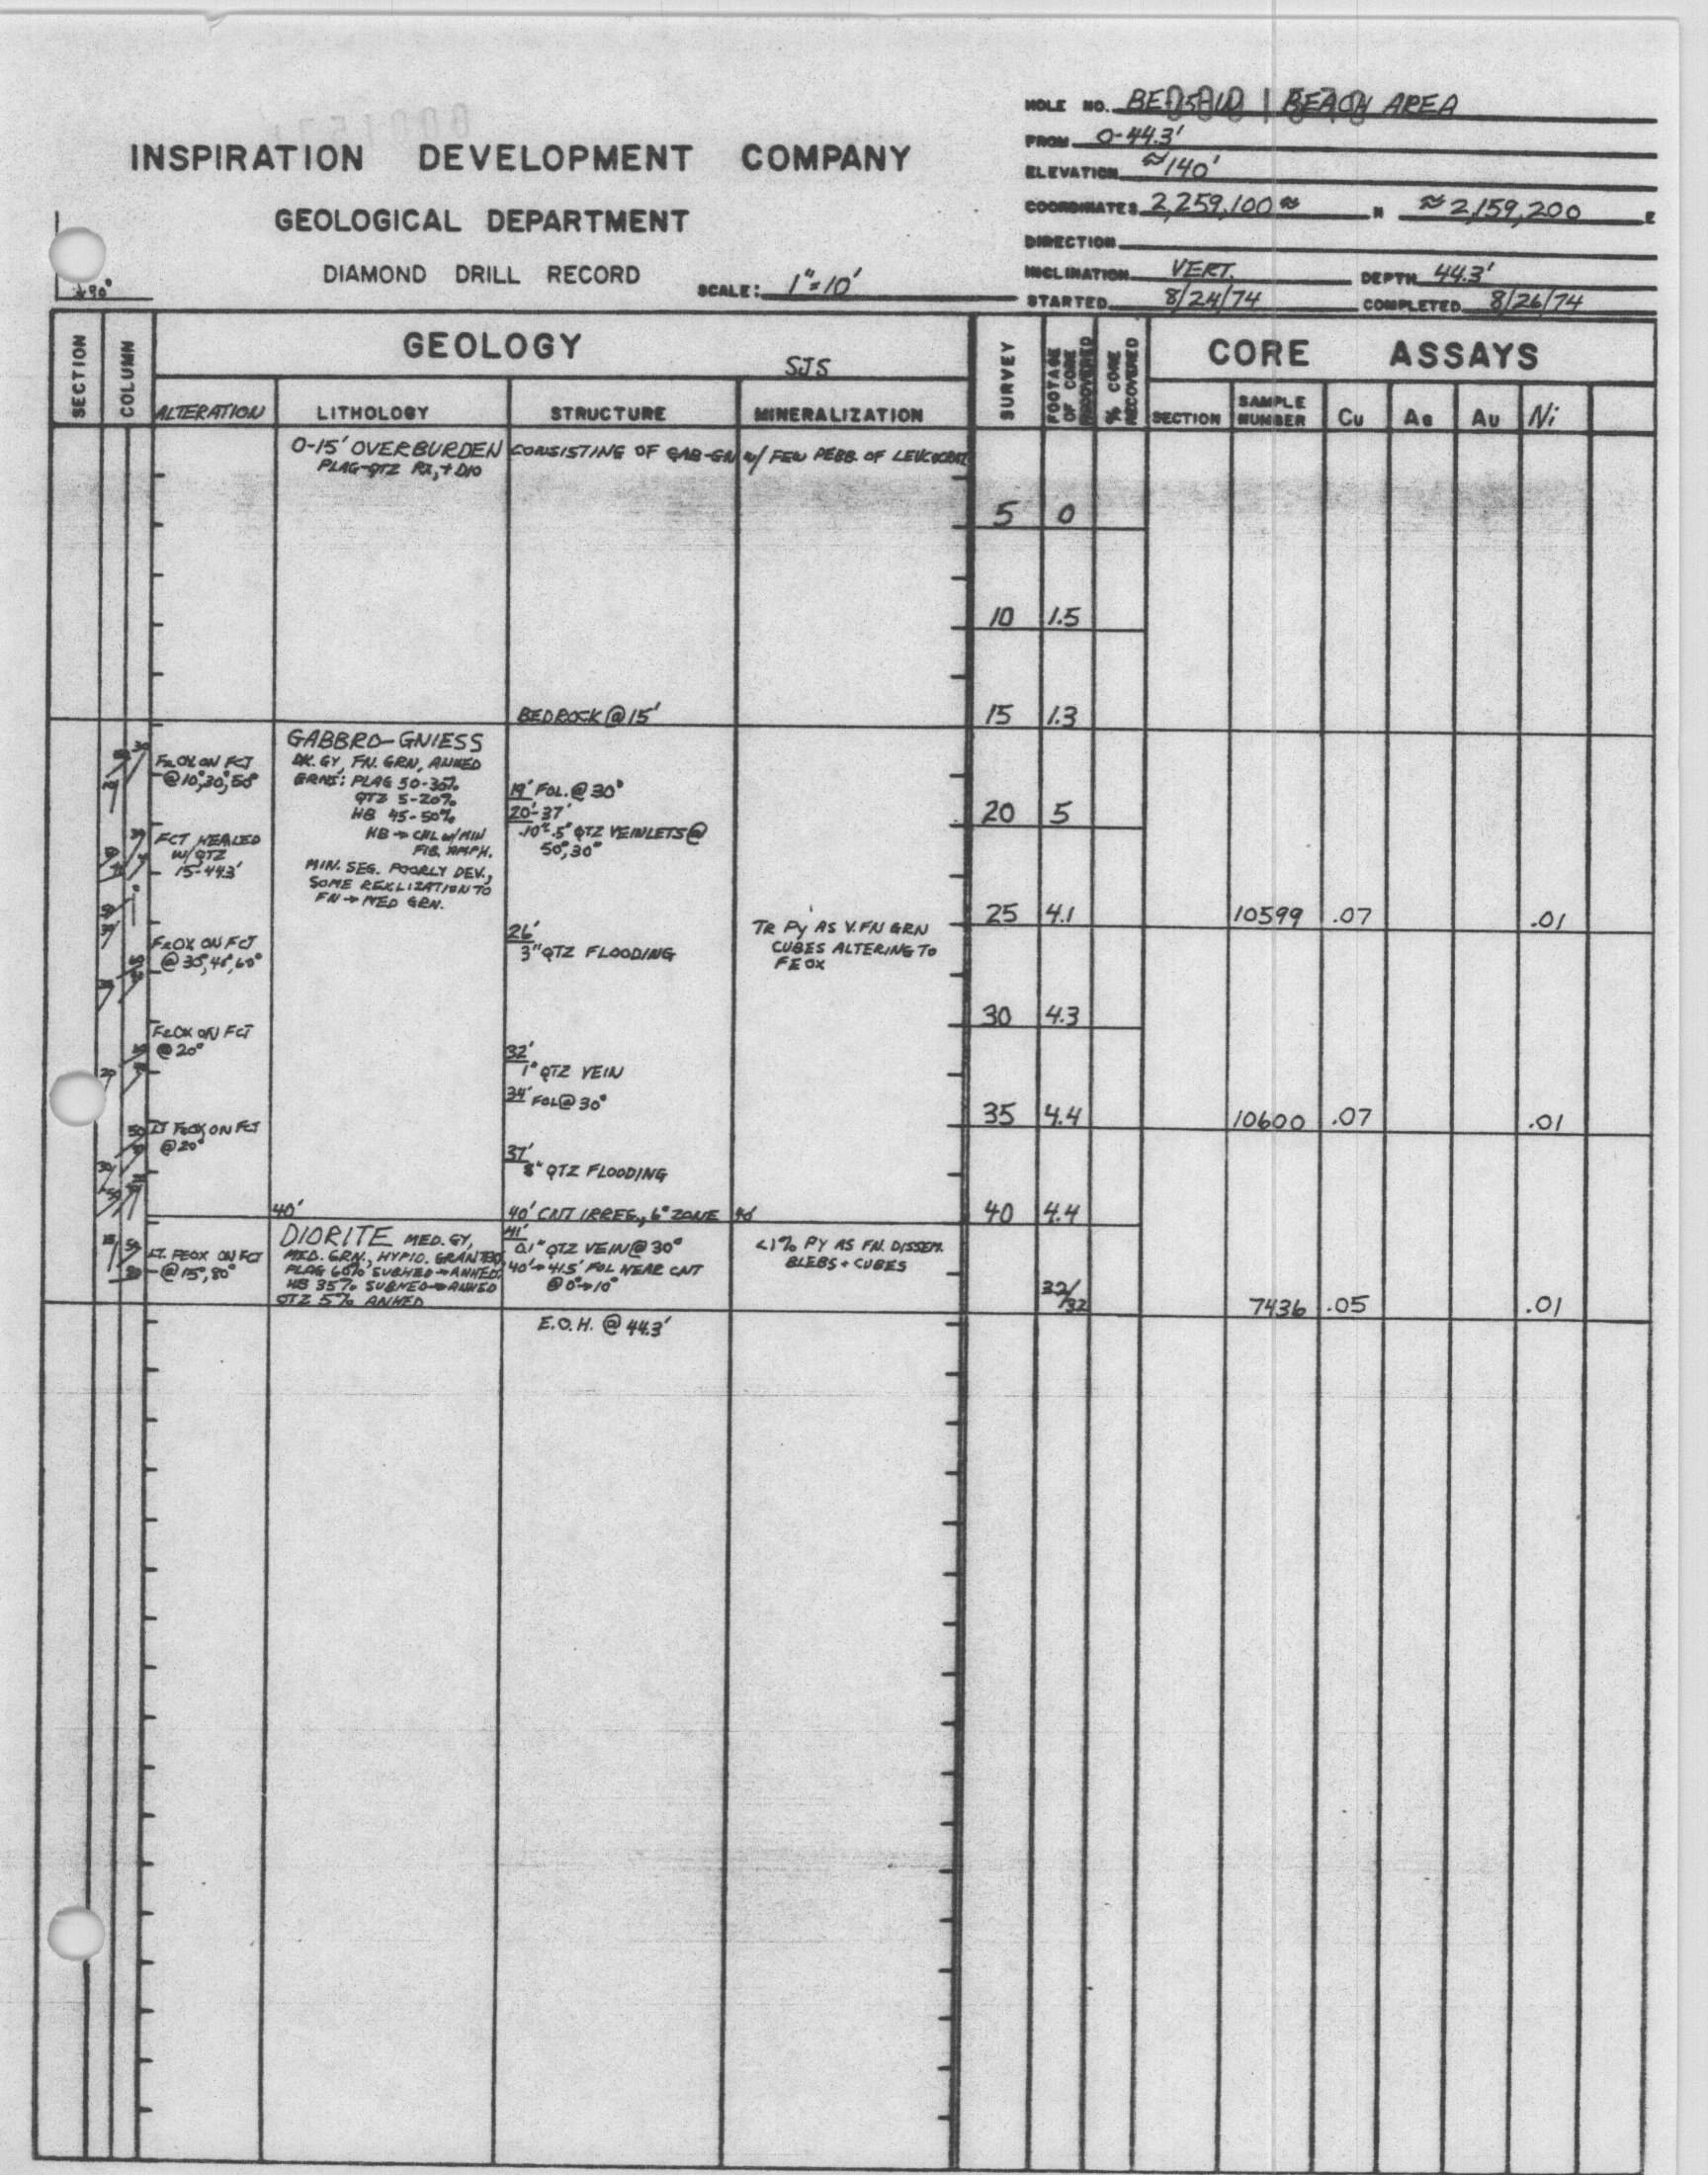 HOLE NO. BEACH AREA
FROM 0-44.3'
INSPIRATION DEVELOPMENT COMPANY
ELEVATION ≈140'
GEOLOGICAL DEPARTMENT
COORDINATES 2,259,100≈ N ≈2,159,200 E
DIRECTION
DIAMOND DRILL RECORD SCALE: 1"=10'
INCLINATION VERT. DEPTH 44.3'
↓90°
STARTED 8/24/74 COMPLETED 8/26/74
SECTION COLUMN GEOLOGY SJS SURVEY FOOTAGE OF CORE RECOVERED % CORE RECOVERED CORE ASSAYS
ALTERATION LITHOLOGY STRUCTURE MINERALIZATION SECTION SAMPLE NUMBER Cu Ag Au Ni
0-15' OVERBURDEN CONSISTING OF GAB-GN w/ FEW PEBB. OF
PLAG-QTZ RX, + DIO
5 0
10 1.5
BEDROCK @ 15'
15 1.3
GABBRO-GNIESS
DK. GY, FN. GRN, ANHED
GRNS: PLAG 50-30%
QTZ 5-20%
HB 45-50%
HB → CHL w/ MIN
FIB. AMPH.
MIN. SEG. POORLY DEV.,
SOME REXLIZATION TO
FN → MED GRN.
FeOX ON FCT
@ 10°, 30°, 50°
FCT HEALED
W/ QTZ
15-44.3'
19' FOL. @ 30°
20'-37'
.10"-.5" QTZ VEINLETS @
50°, 30°
20 5
26'
3" QTZ FLOODING
TR Py AS V. FN GRN
CUBES ALTERING TO
FEOX
25 4.1 10599 .07 .01
FeOX ON FCT
@ 30°, 40°, 60°
30 4.3
FeOX ON FCT
@ 20°
32'
1" QTZ VEIN
34' FOL @ 30°
35 4.4 10600 .07 .01
LT FeOX ON FCT
@ 20°
37'
QTZ FLOODING
40' 40' CNT IRREG., 6" ZONE 40'
40 4.4
DIORITE MED. GY,
MED. GRN., HYPID. GRAN
PLAG 60% SUBHED → ANHED
HB 35% SUBHED → ANHED
QTZ 5% ANHED
LT. FEOX ON FCT
@ 15°, 80°
41'
0.1" QTZ VEIN @ 30°
40' → 41.5' FOL NEAR CNT
@ 0° → 10°
<1% PY AS FN. DISSEM.
BLEBS + CUBES
7436 .05 .01
E.O.H. @ 44.3'